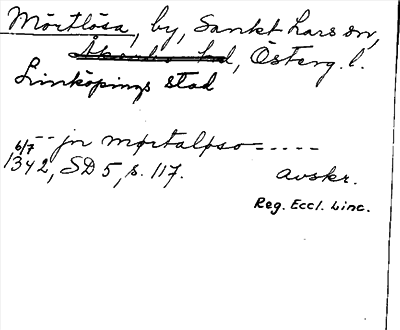 Mörtlösa, by, Sankt Lars sn,
Åkerbo hd, Österg. l.
Linköpings stad
-- jn mørtaløso -----
6/7 1342, SD 5, s. 117. avskr.
Reg. Eccl. Linc.